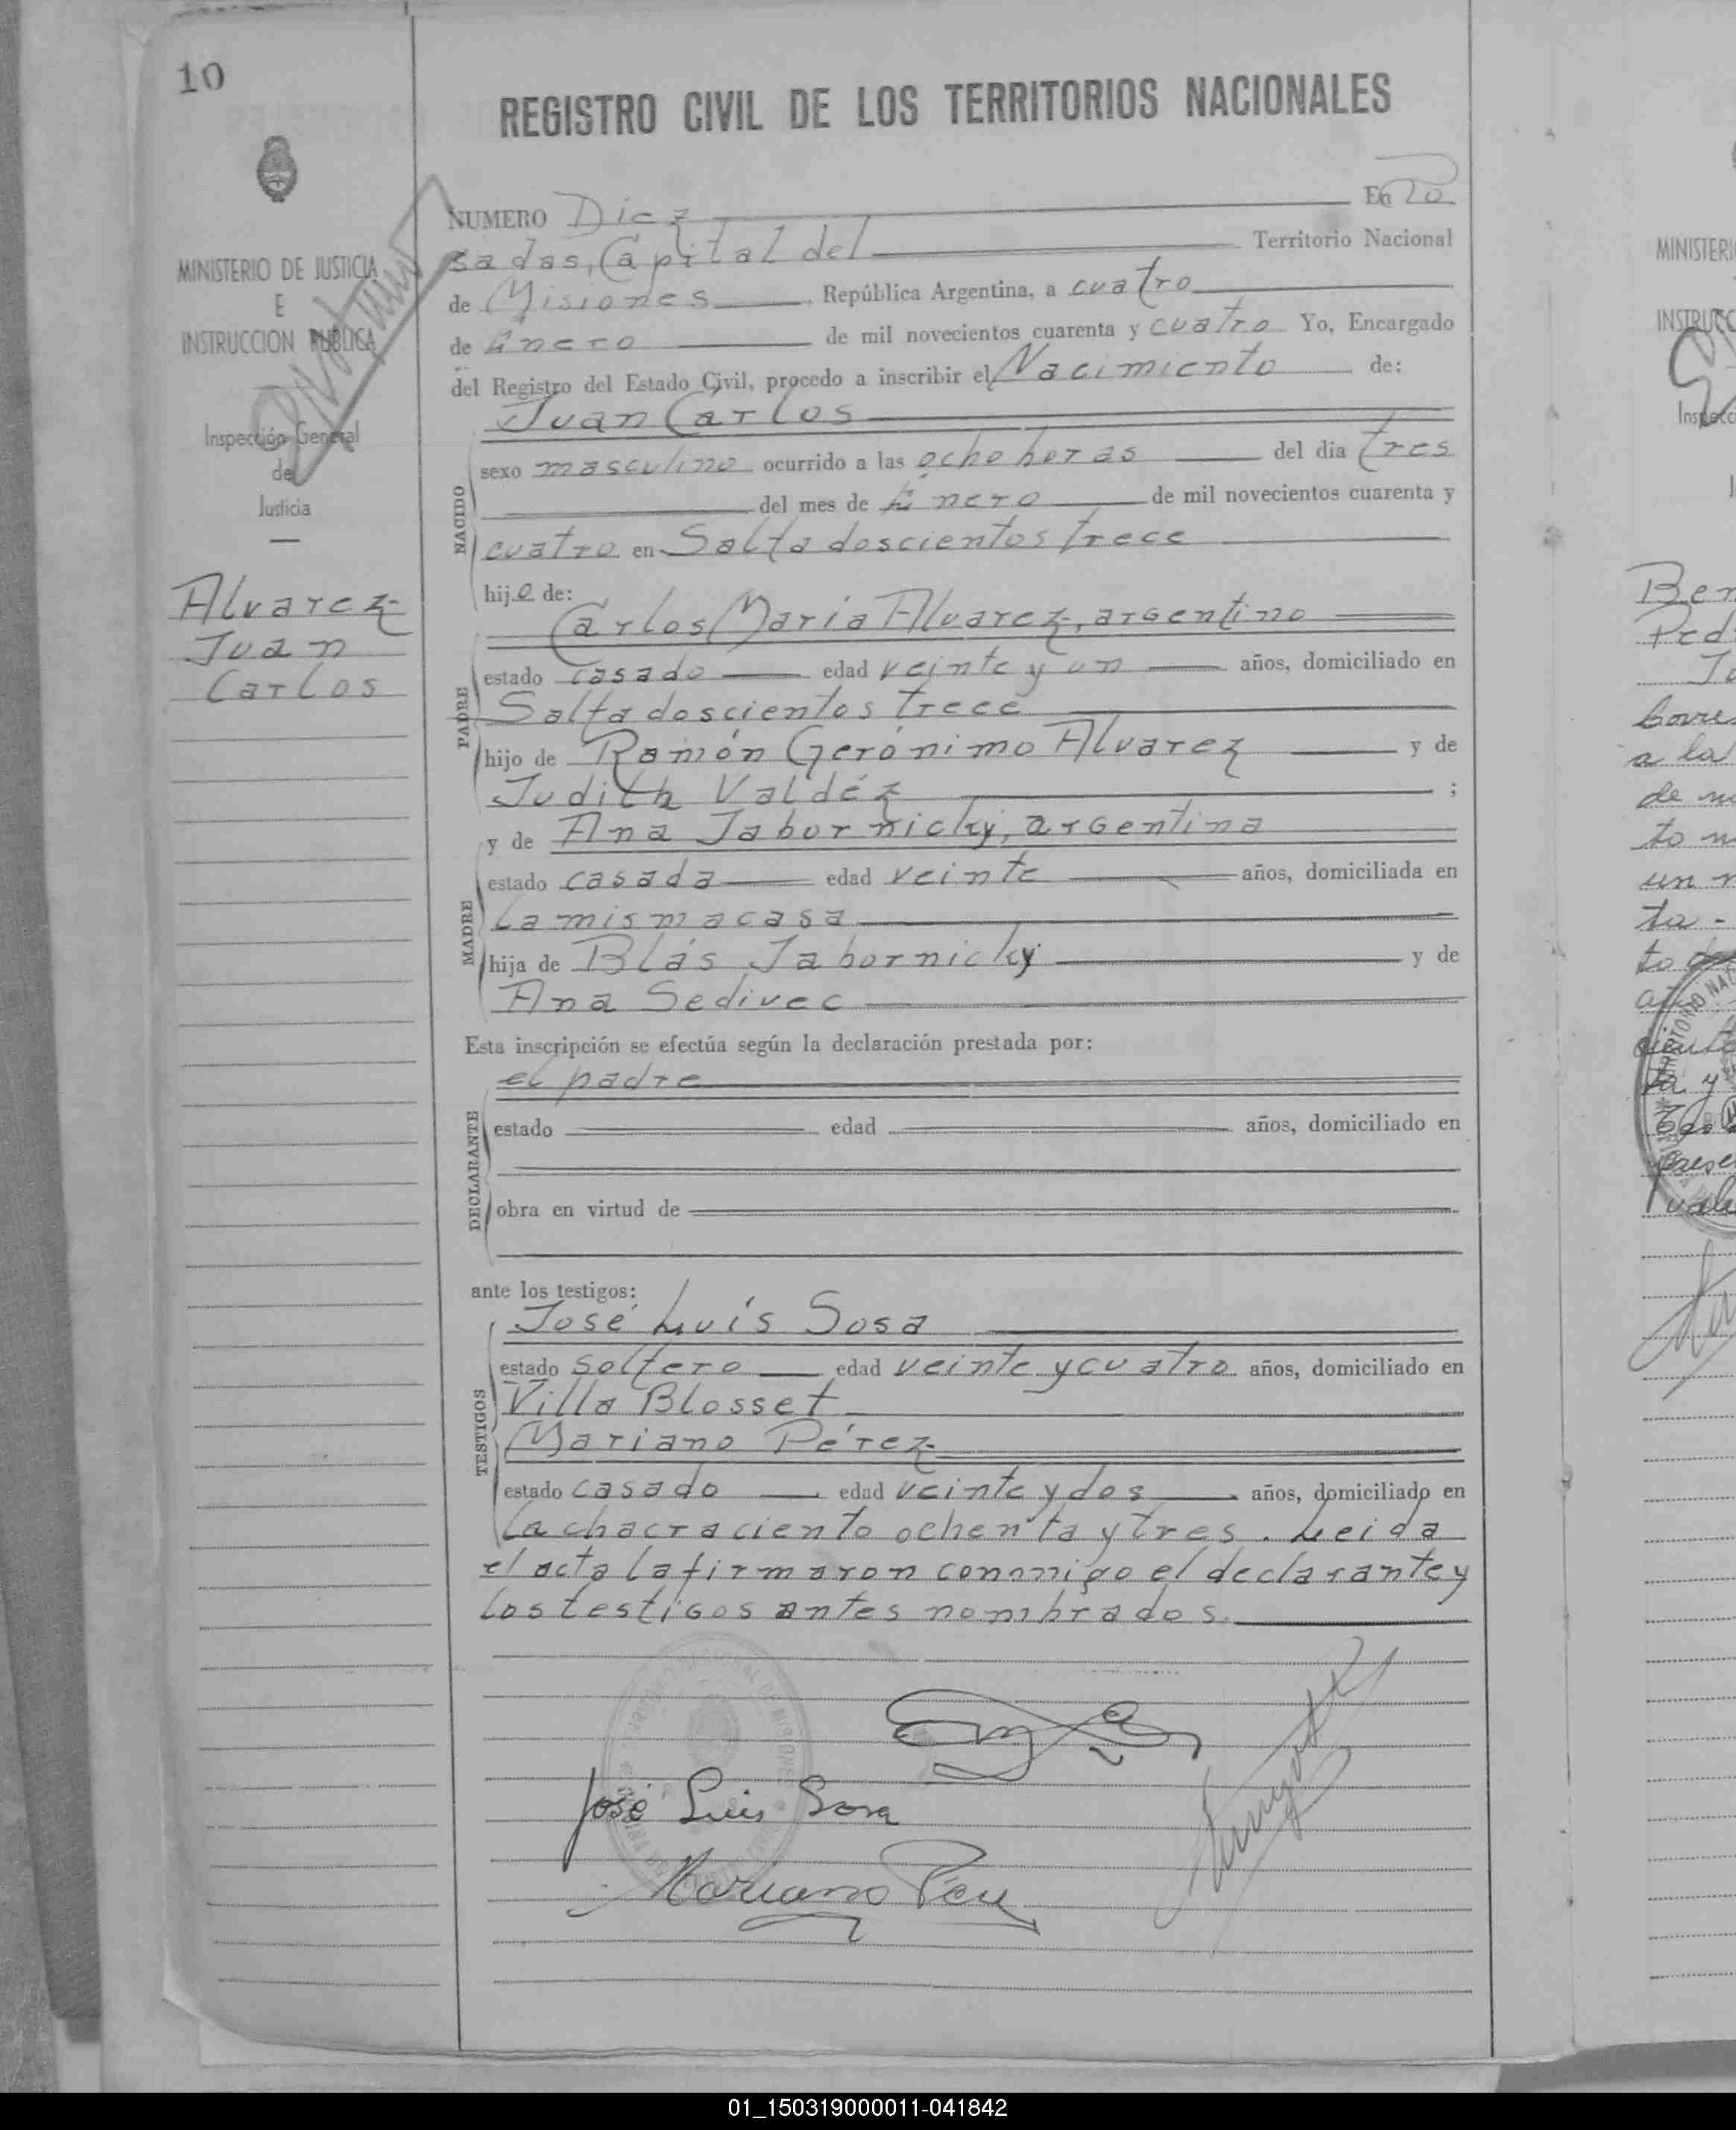 10
REGISTRO CIVIL DE LOS TERRITORIOS NACIONALES
MINISTERIO DE JUSTICIA
E
INSTRUCCION PUBLICA
Inspección General
de
Justicia
Alvarez
Juan
Carlos
NUMERO Diez En Po
sadas, Capital del Territorio Nacional
de Misiones, República Argentina, a cuatro
de Enero de mil novecientos cuarenta y cuatro Yo, Encargado
del Registro del Estado Civil, procedo a inscribir el Nacimiento de:
Juan Carlos
NACIDO
sexo masculino ocurrido a las ocho horas del día tres
del mes de Enero de mil novecientos cuarenta y
cuatro en Salta doscientos trece
hijo de:
Carlos María Alvarez, argentino
PADRE
estado casado edad veinte y un años, domiciliado en
Salta doscientos trece
hijo de Ramón Gerónimo Alvarez y de
Judith Valdéz ;
y de Ana Jabornicky, argentina
MADRE
estado casada edad veinte años, domiciliada en
La misma casa
hija de Blás Jabornicky y de
Ana Sedivec
Esta inscripción se efectúa según la declaración prestada por:
el padre
DECLARANTE
estado edad años, domiciliado en
obra en virtud de
ante los testigos:
José Luís Sosa
TESTIGOS
estado soltero edad veinte y cuatro años, domiciliado en
Villa Blosset
Mariano Pérez
estado casado edad veinte y dos años, domiciliado en
La chacra ciento ochenta y tres. Leida
el acta la firmaron conmigo el declarante y
los testigos antes nombrados.
José Luis Sosa
Mariano Pérez
MINISTERI
INSTRUCC
Inspecci
J
Ber
Ped
a la
de
to
un
ta -
to
01_150319000011-041842